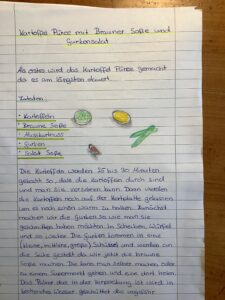 Kartoffel Püree mit Brauner Soße und
Gurkensalat
Als erstes wird das Kartoffel Püree gemacht
da es am längsten dauert.
Zutaten:
• Kartoffeln
• Braune Soße
• Muskatnuss
• Gurken
• Salat Soße
Die Kartoffeln werden 25 bis 30 Minuten
gekocht so, dass die Kartoffeln durch sind
und man sie zerdrücken kann. Dann werden
die Kartoffeln noch auf der Herdplatte gelassen
um es noch schön warm zu halten. Zunächst
machen wir die Gurken so wie man sie
geschnitten haben möchten in Scheiben, Würfel
und so weiter. Die Gurken kommen in eine
(kleine, mittlere, große) Schüssel und werden an
die Seite gestellt da wir jetzt die braune
Soße machen. Die kann man selber machen oder
zu einem Supermarkt gehen und eine dort holen.
Das Pulver das in der Verpackung ist wird in
kochendes Wasser geschüttet das ungefähr